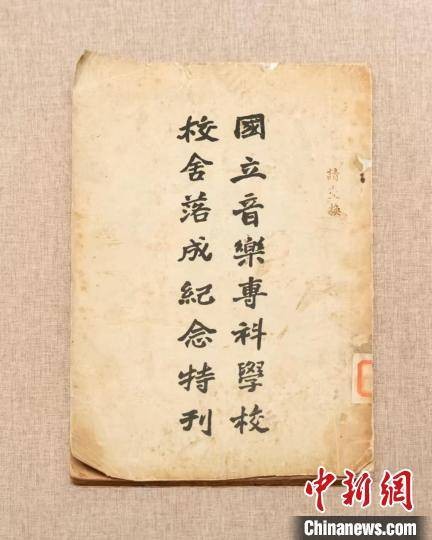 國立音樂專科學校
校舍落成紀念特刊
請交換
中新網
Chinanews.com